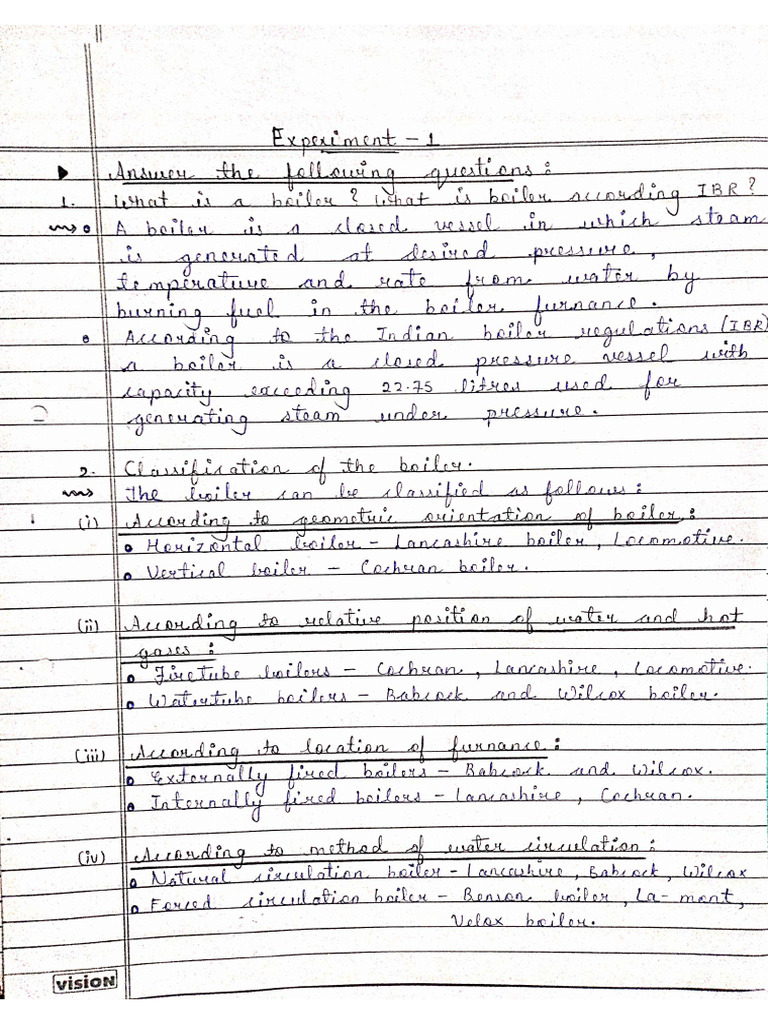 Experiment - 1
Answer the following questions :
1. What is a boiler? What is boiler according IBR?
ans A boiler is a closed vessel in which steam
is generated at desired pressure,
temperature and rate from water by
burning fuel in the boiler furnance.
According to the Indian boiler regulations (IBR)
a boiler is a closed pressure vessel with
capacity exceeding 22.75 litres used for
generating steam under pressure.
2. Classification of the boiler.
ans The boiler can be classified as follows :
(i) According to geometric orientation of boiler :
Horizontal boiler - Lancashire boiler, Locomotive.
Vertical boiler - Cochran boiler.
(ii) According to relative position of water and hot
gases :
Firetube boilers - Cochran, Lancashire, Locomotive.
Watertube boilers - Babcock and Wilcox boiler.
(iii) According to location of furnance :
Externally fired boilers - Babcock and Wilcox.
Internally fired boilers - Lancashire, Cochran.
(iv) According to method of water circulation :
Natural circulation boiler - Lancashire, Babcock, Wilcox
Forced circulation boiler - Benson boiler, La-mont,
Velox boiler.
vision